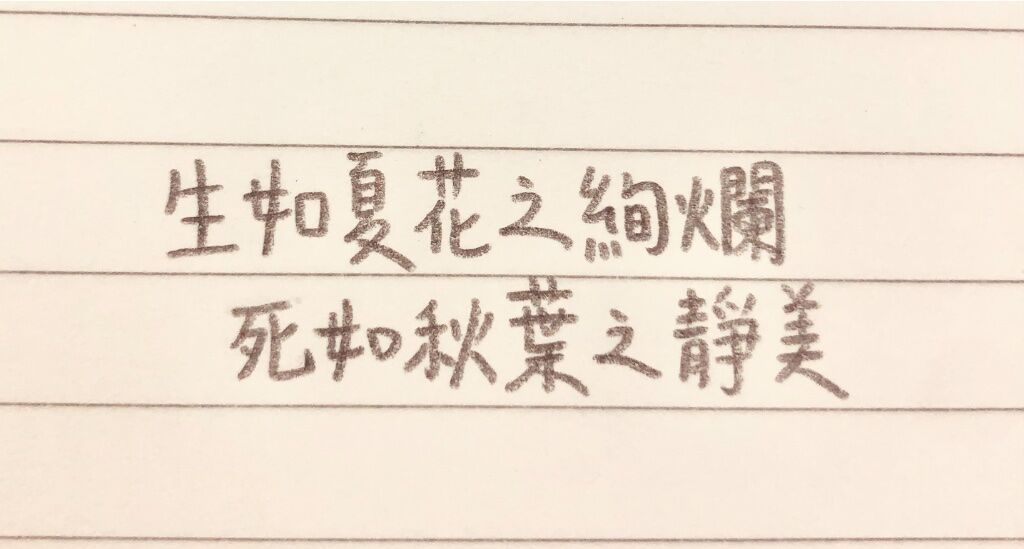 生如夏花之絢爛
死如秋葉之靜美